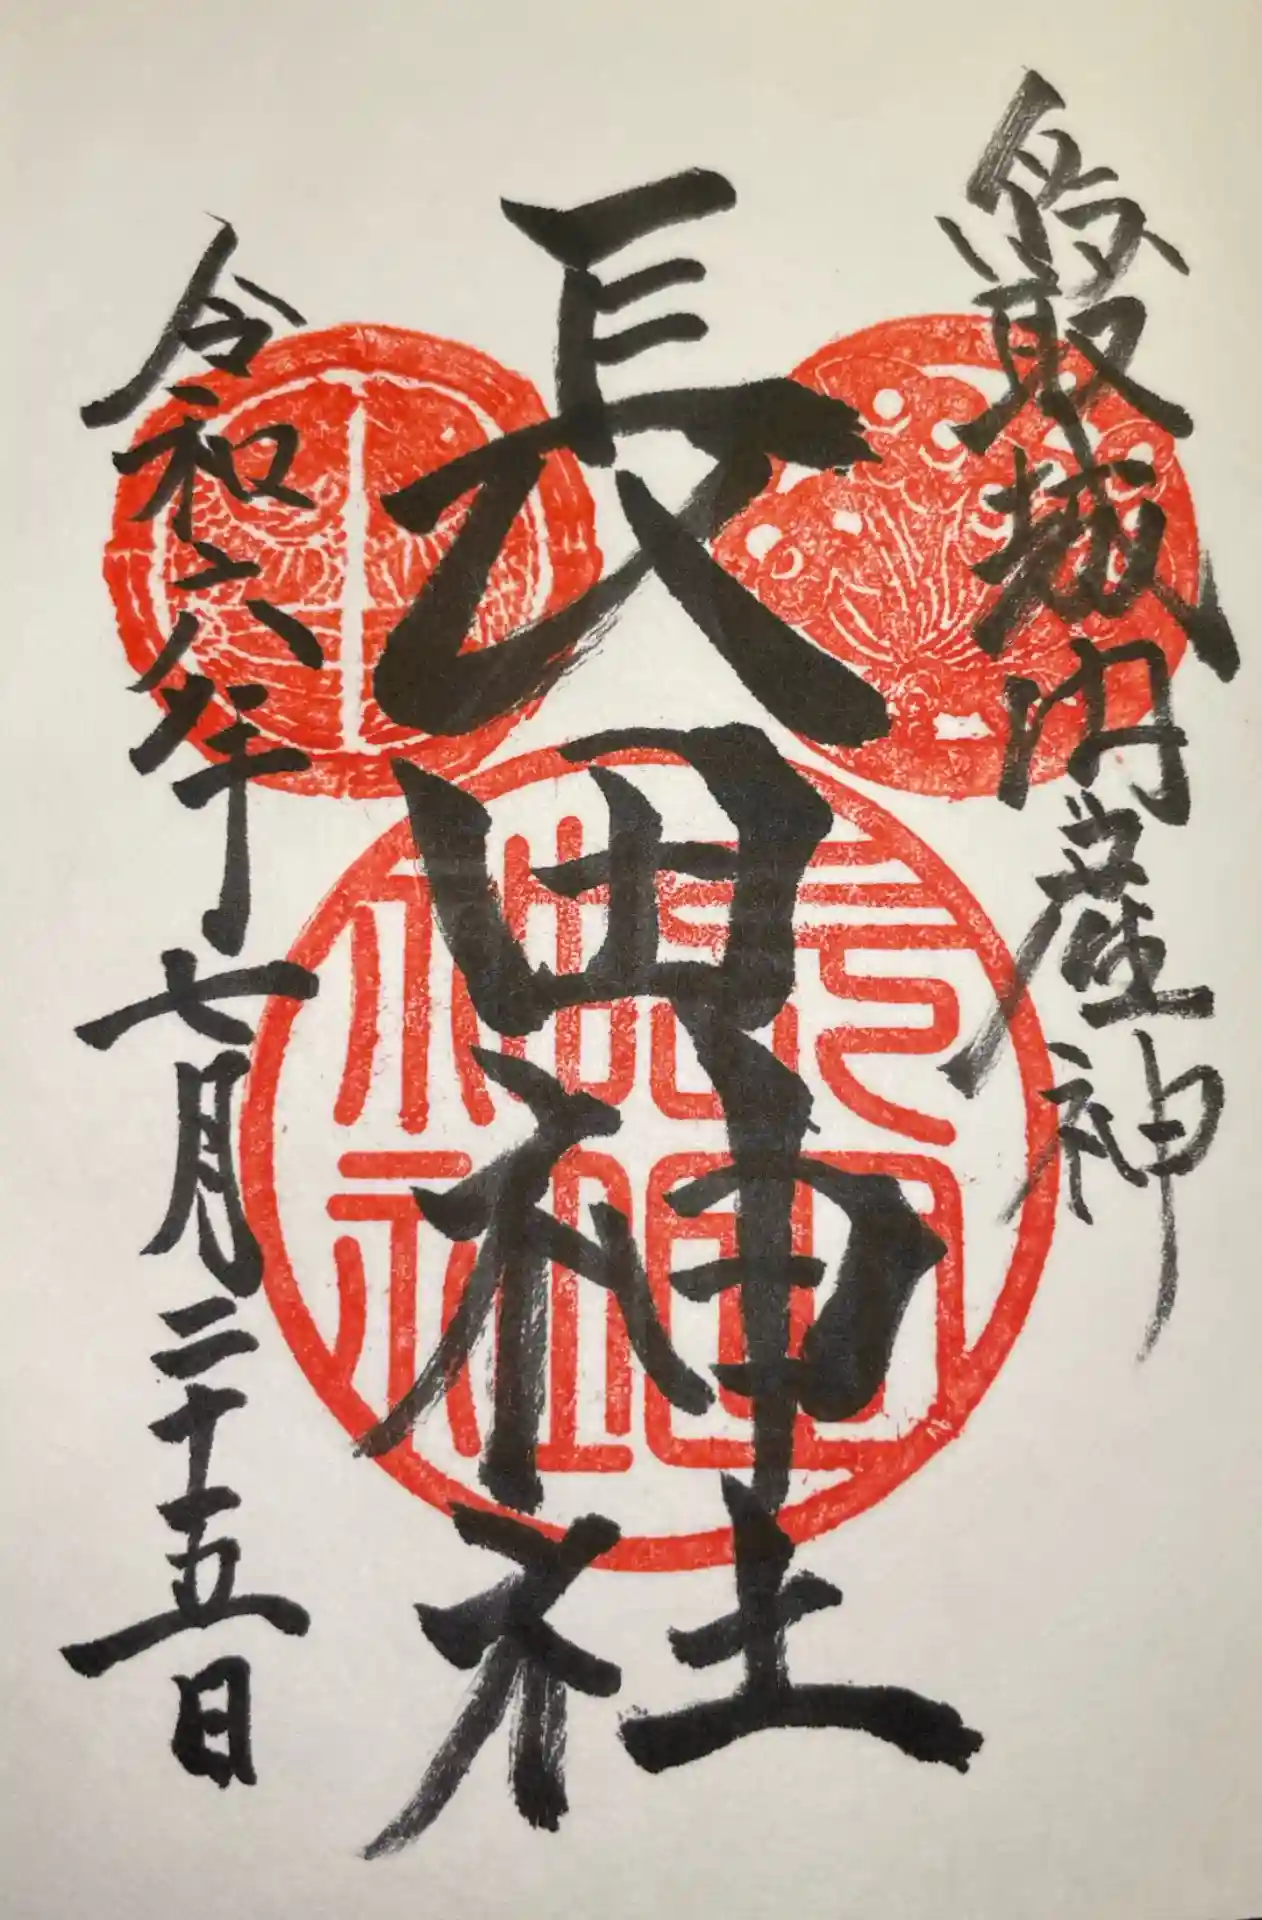 鳥取城内産神
長田神社
令和六年七月二十五日
長田神社